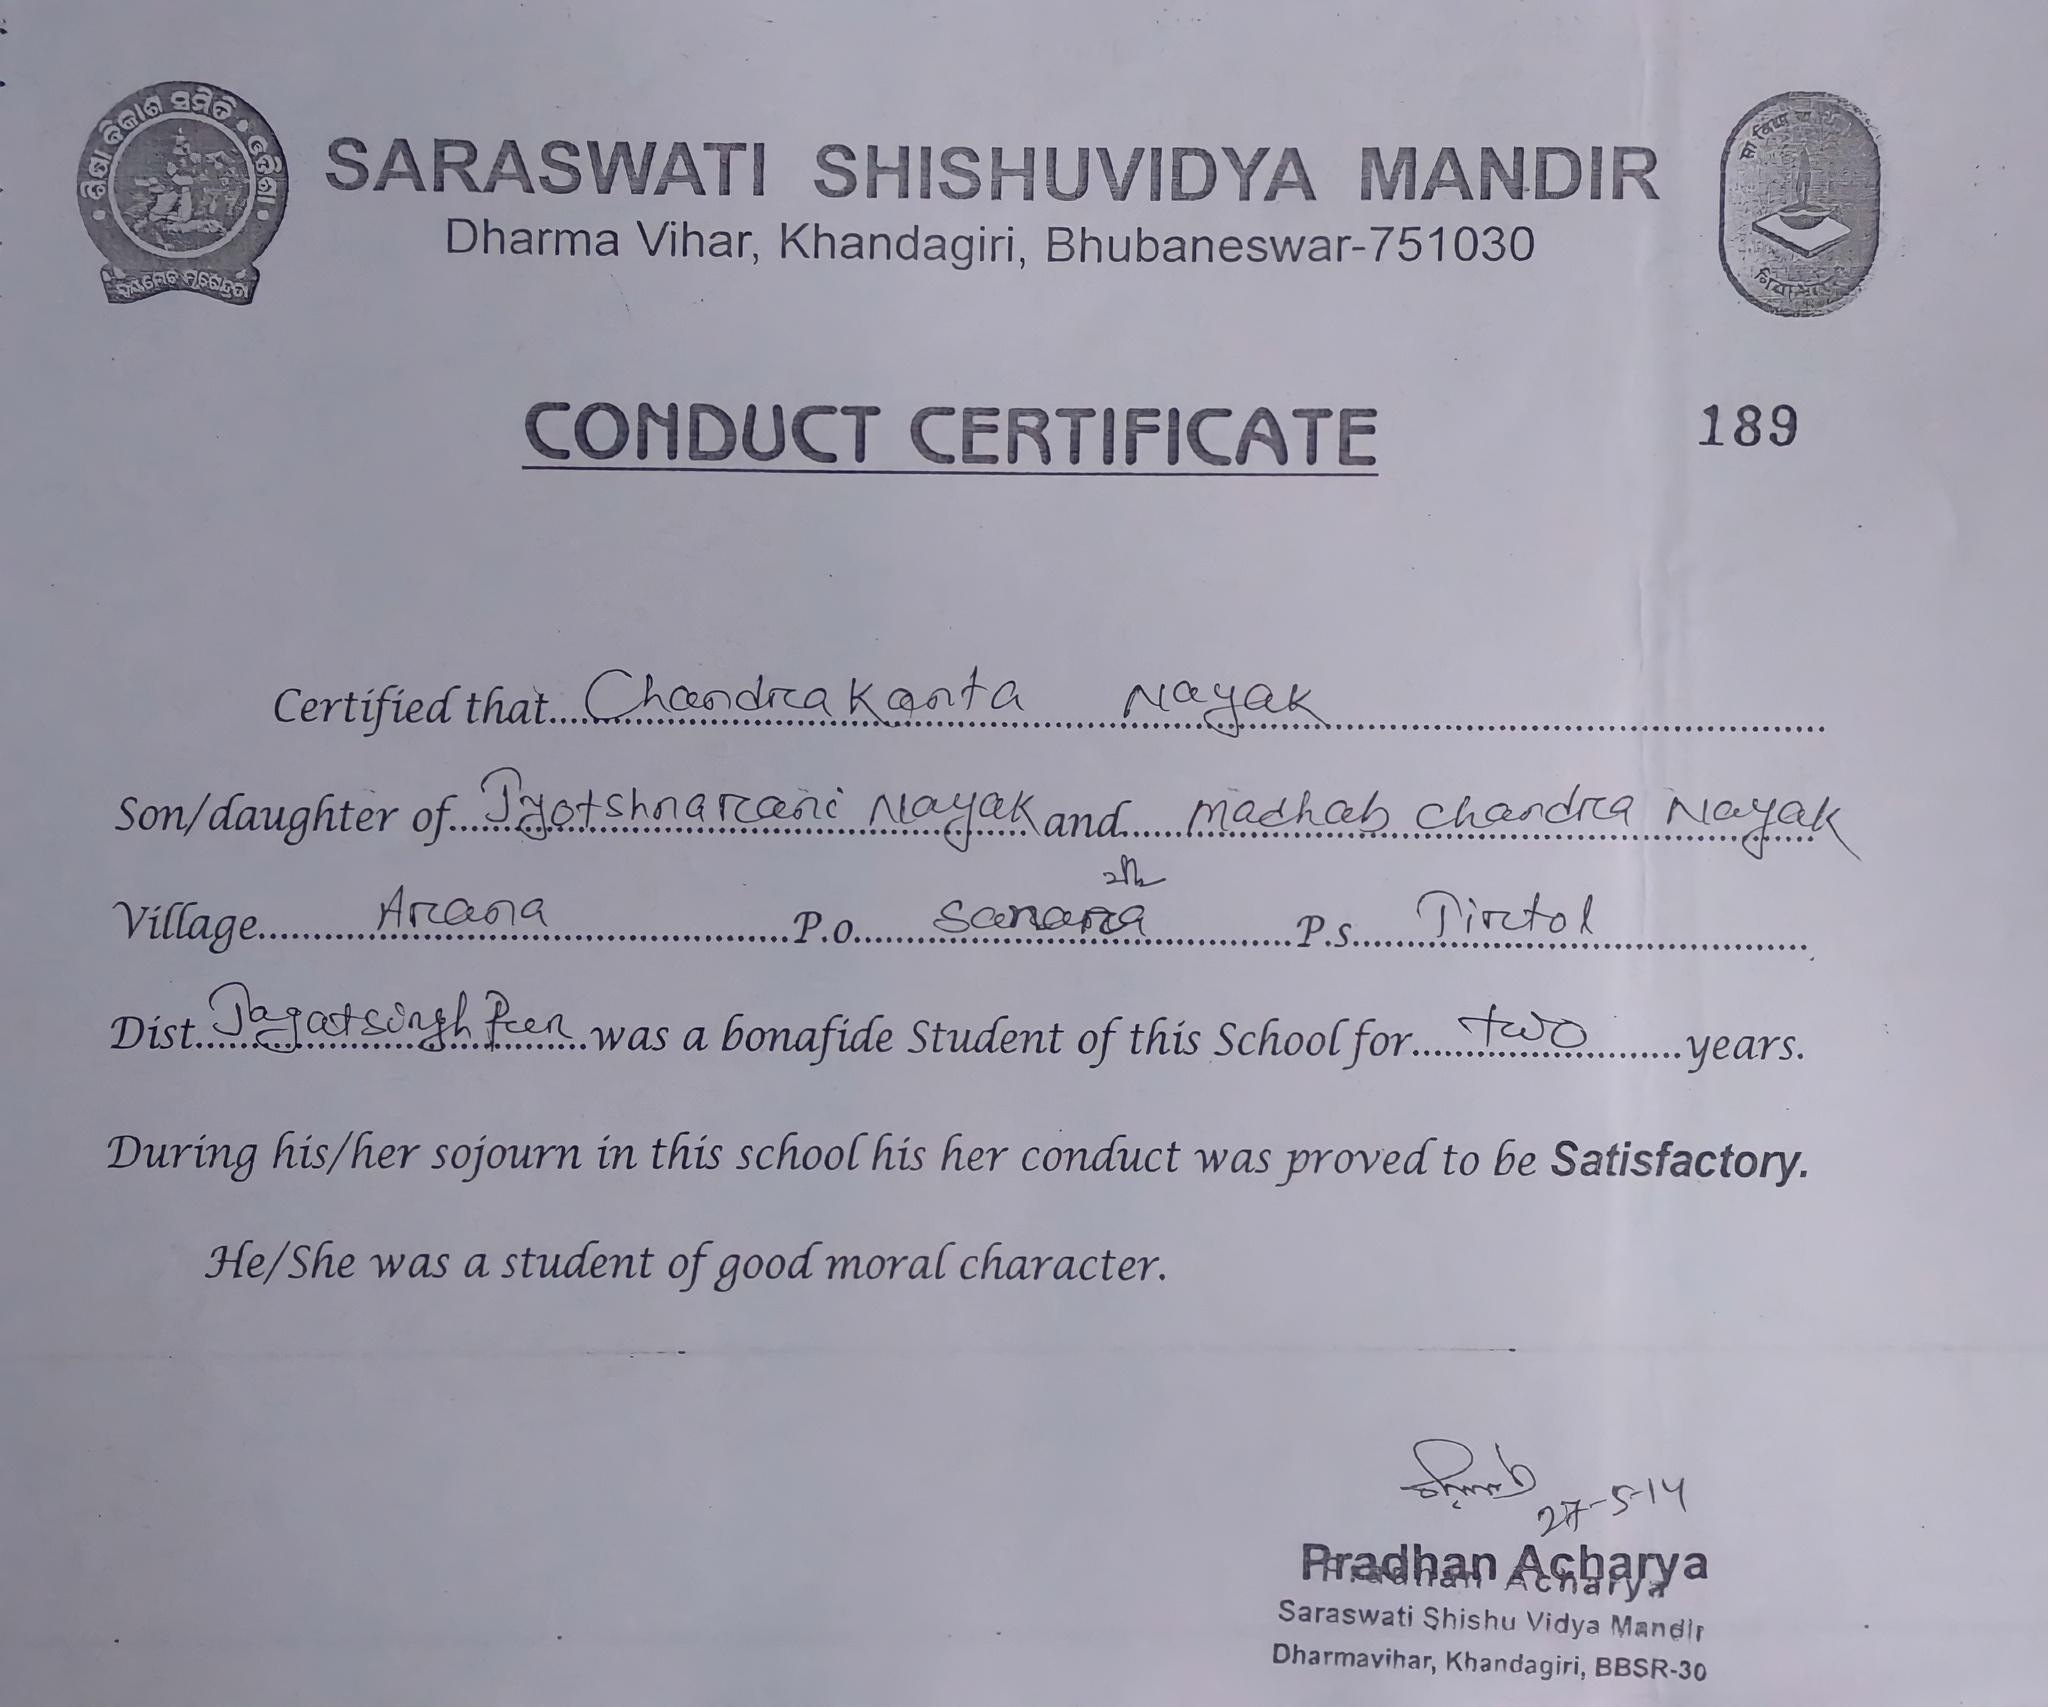 ଶିକ୍ଷା ବିକାଶ ସମିତି • ଓଡ଼ିଶା •
सा विद्या या
SARASWATI SHISHUVIDYA MANDIR
Dharma Vihar, Khandagiri, Bhubaneswar-751030
CONDUCT CERTIFICATE 189
Certified that Chandrakanta Nayak
Son/daughter of Jyotshnarani Nayak and Madhab Chandra Nayak
Village Arana P.o Sanara P.s Tirtol
Dist Jagatsingh Pur was a bonafide Student of this School for two years.
During his/her sojourn in this school his her conduct was proved to be Satisfactory.
He/She was a student of good moral character.
27-5-14
Pradhan Acharya
Pradhan Acharya
Saraswati Shishu Vidya Mandir
Dharmavihar, Khandagiri, BBSR-30